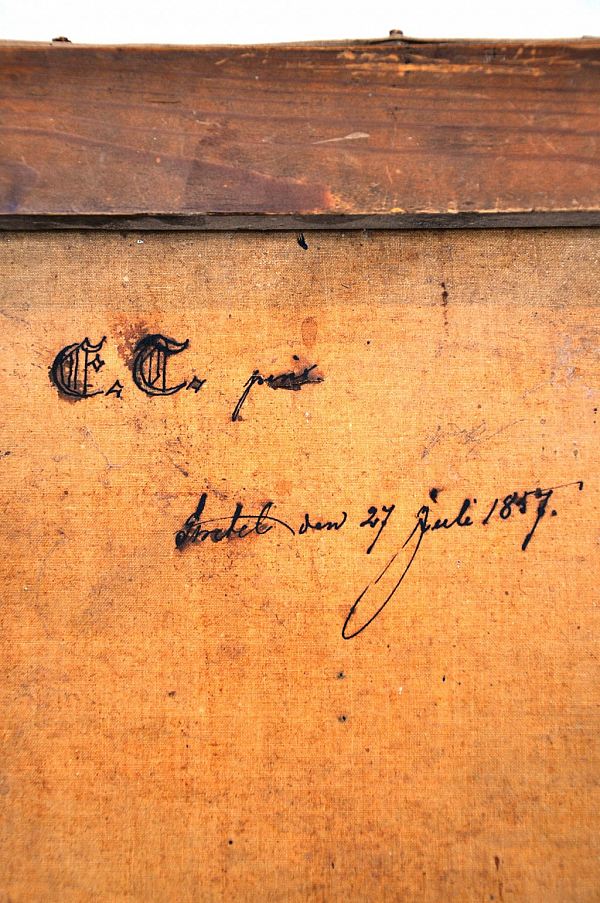 E. T. pinx
den 27 Juli 1857.